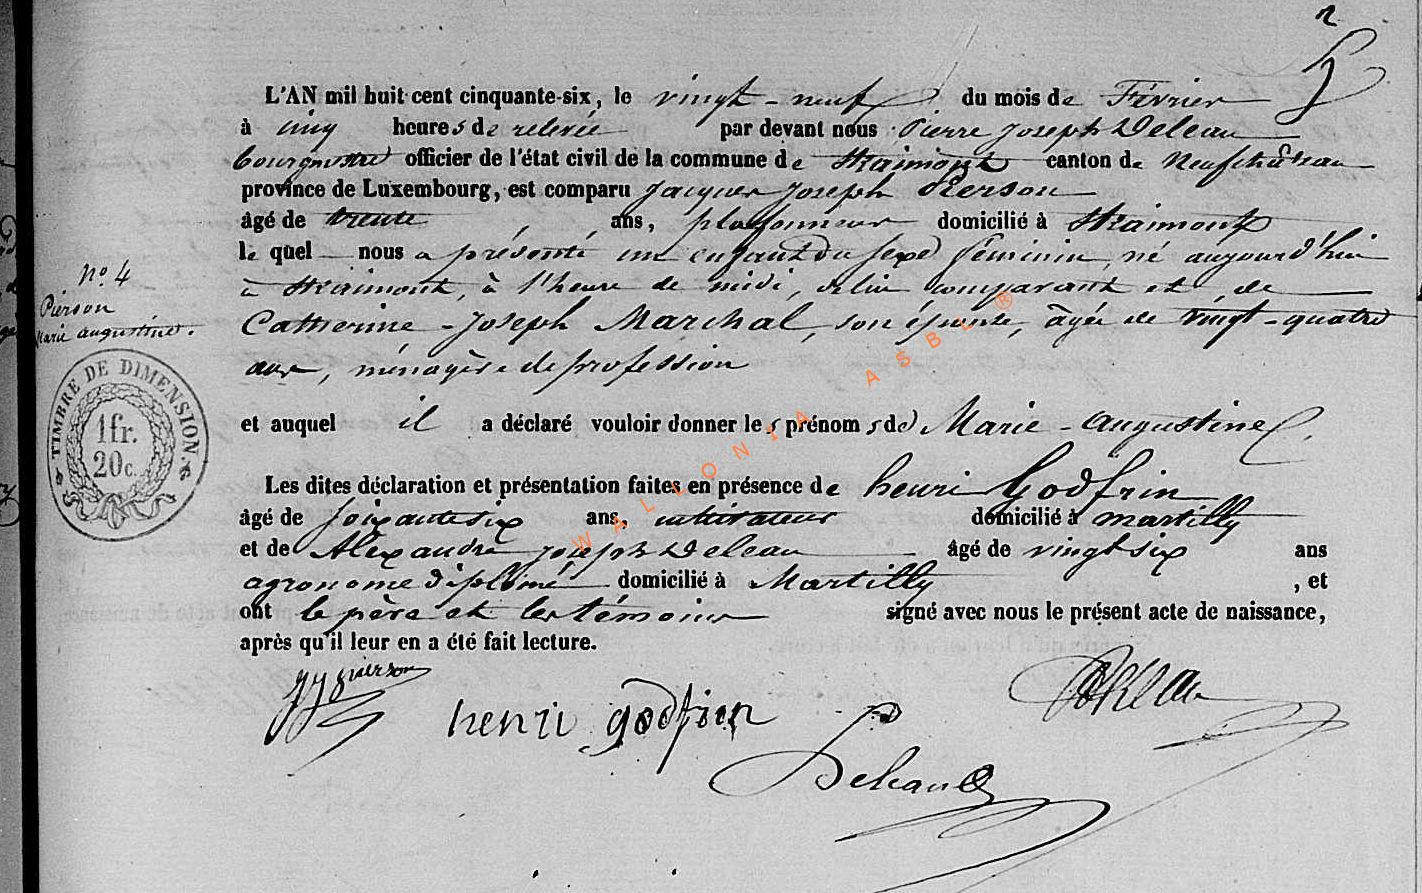 2
5
L'AN mil huit cent cinquante-six, le vingt-neuf du mois de Février
à cinq heures de relevée par devant nous Pierre Joseph Deleau
bourgmestre officier de l'état civil de la commune de Straimont canton de Neufchâteau
province de Luxembourg, est comparu Jacques Joseph Pierson
âgé de trente ans, plafonneur domicilié à Straimont
le quel nous a présenté un enfant du sexe féminin, né aujourd'hui
à Straimont, à l'heure de midi, de lui comparant et de
Catherine-Joseph Marchal, son épouse, âgée de vingt-quatre
ans, ménagère de profession
et auquel il a déclaré vouloir donner les prénoms de Marie-Augustine.
Les dites déclaration et présentation faites en présence de henri Godfrin
âgé de soixante six ans, cultivateur domicilié à martilly
et de Alexandre Joseph Deleau âgé de vingt six ans
agronome diplômé domicilié à Martilly, et
ont le père et les témoins signé avec nous le présent acte de naissance,
après qu'il leur en a été fait lecture.
No. 4
Pierson
Marie augustine.
TIMBRE DE DIMENSION.
1 fr.
20 c.
JJ pierson
henri godfrin
Deleau
WALLONIA ASBL ®